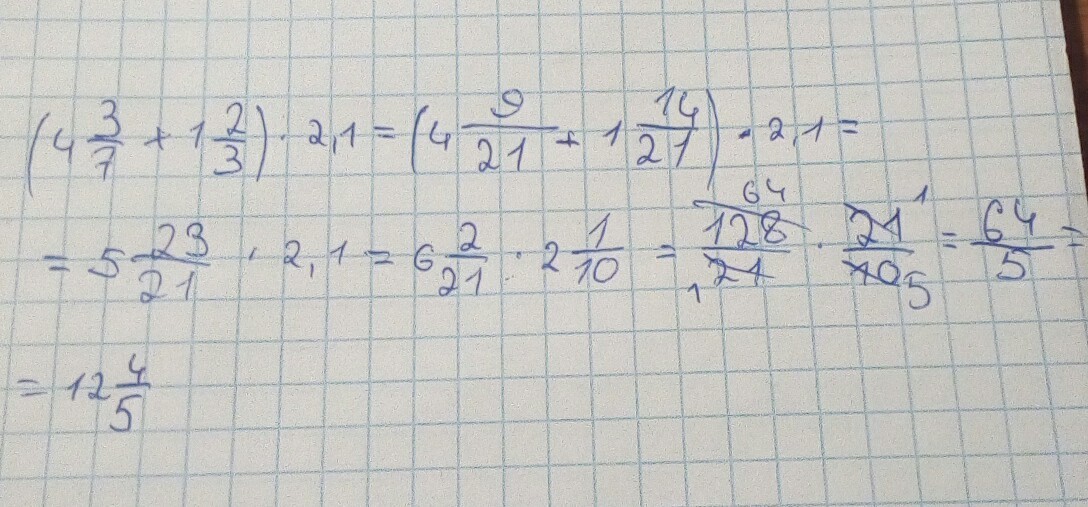 (4 3/7 + 1 2/3) · 2,1 = (4 9/21 + 1 14/21) · 2,1 =
= 5 23/21 · 2,1 = 6 2/21 · 2 1/10 = 128/21 64 1 · 21/10 1 5 = 64/5 =
= 12 4/5